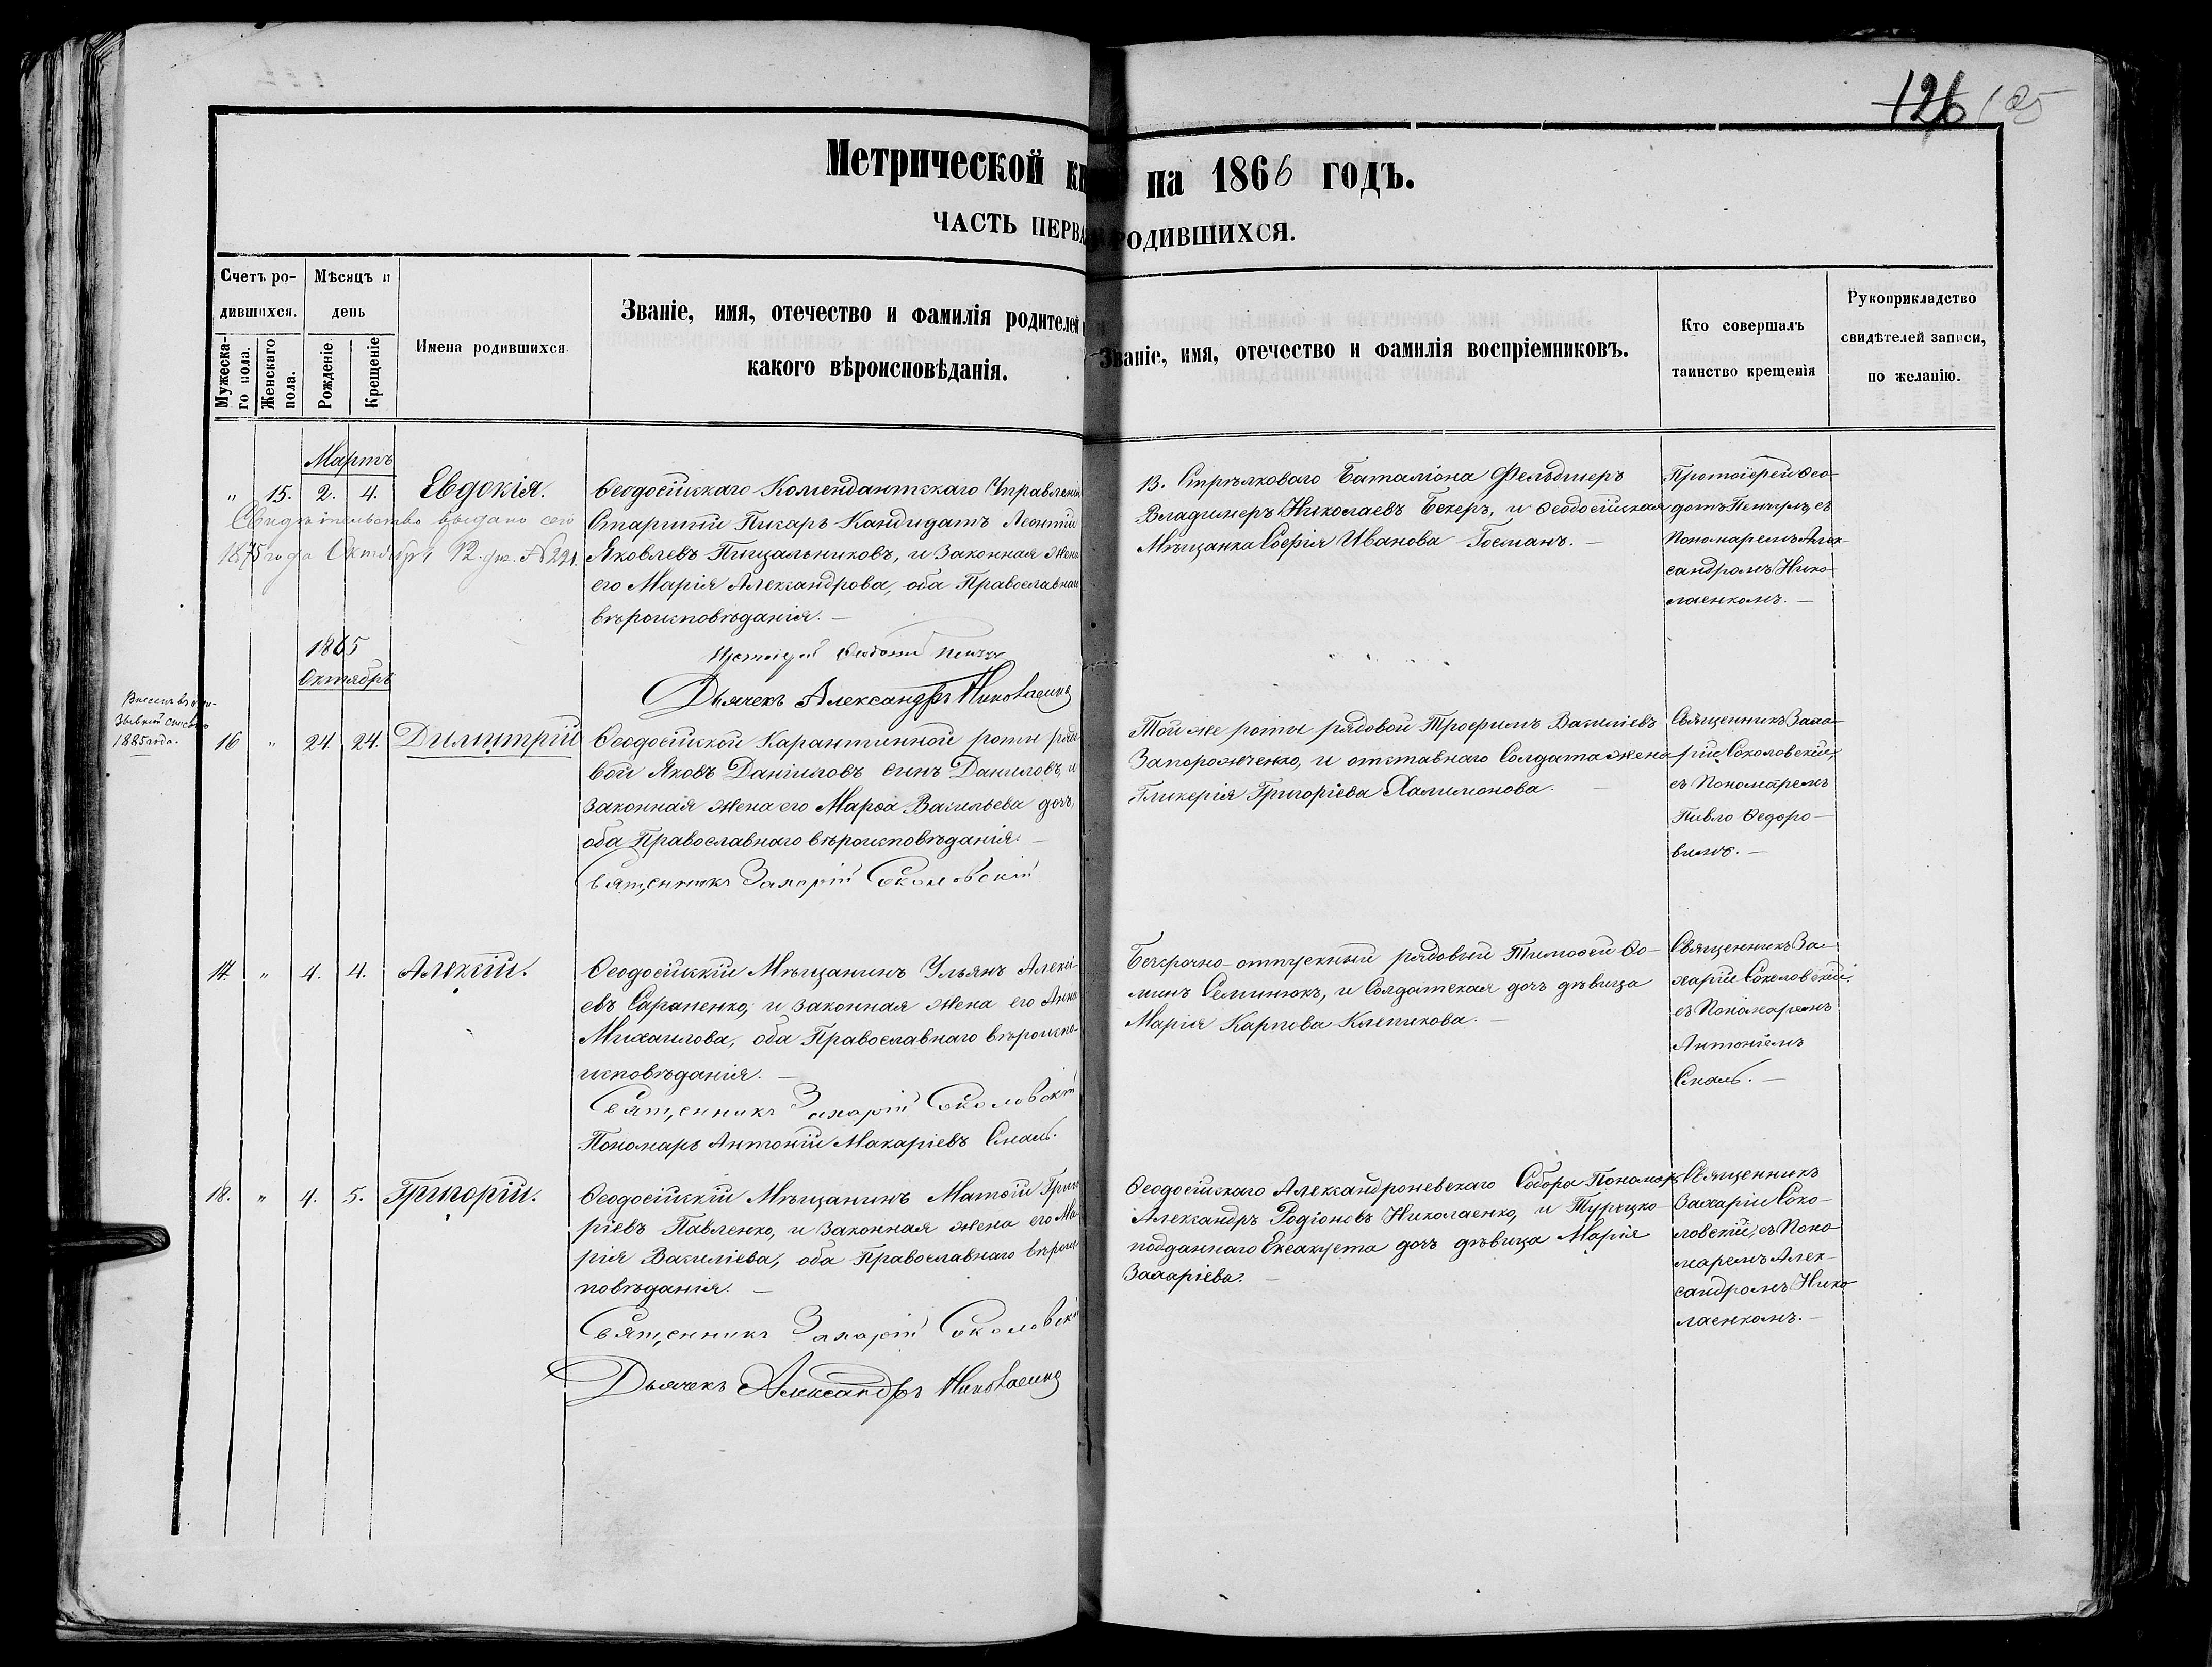 126 125
Метрической кн на 1866 годъ.
ЧАСТЬ ПЕРВА РОДИВШИХСЯ.
Счетъ ро-
дившихся.
Мужеска-
го пола.
Женскаго
пола.
Мѣсяцъ и
день
Рожденіе.
Крещеніе
Имена родившихся.
Званіе, имя, отечество и фамилія родителей и
какого вѣроисповѣданія.
Званіе, имя, отечество и фамилія воспріемниковъ.
Кто совершалъ
таинство крещенія
Рукоприкладство
свидѣтелей записи,
по желанію.
Мартъ
" 15. 2. 4. Евдокія.
Свидѣтельство выдано сего
1875 года Октября 12 дня. № 221.
Ѳеодосійскаго Комендантскаго Управленія
Старшій Писарь Кандидатъ Леонтій
Яковлевъ Пищальниковъ, и законная жена
его Марія Александрова, оба Православнаго
вѣроисповѣданія. —
Протоіерей Ѳеодотъ
Дьячекъ Александръ Николаенко
13. Стрѣлковаго Баталіона Фельдшеръ
Владимеръ Николаевъ Бекеръ, и Ѳеодосійская
Мѣщанка Софія Иванова Госманъ. —
Протоіерей Ѳео-
дотъ съ
Пономаремъ Алек-
сандромъ Нико-
лаенкомъ. —
1865
Октябрь
1885 года.
16 " 24. 24. Димитрій
Ѳеодосійской Карантинной роты рядо
вой Яковъ Даніиловъ сынъ Даниловъ, и
законная жена его Марѳа Васильева дочь,
оба Православнаго вѣроисповѣданія. —
Священникъ Захарій Соколовскій
Той же роты рядовой Трофимъ Василіевъ
Запорожченко, и отставнаго Солдата жена
Гликерія Григоріева Халимонова. —
Священникъ Заха-
рій Соколовскій,
съ Пономаремъ
Ѳедоро-
вымъ. —
17. " 4. 4. Алексій.
Ѳеодосійскій Мѣщанинъ Ульянъ Алексі-
евъ Сараненко, и законная жена его Анна
Михаилова, оба Православнаго вѣроиспо-
исповѣданія. —
Священникъ Захарій Соколовскій
Пономарь Антоній Макаріевъ
Безсрочно-отпускный рядовый Тимоѳей Ѳо-
минъ Семинюкъ, и Солдатская дочь дѣвица
Марія Карпова Клепикова. —
Священникъ За-
харій Соколовскій.
съ Пономаремъ
Антоніемъ
18. " 4. 5. Григорій.
Ѳеодосійскій Мѣщанинъ Матѳій Григо
ріевъ Павленко, и законная жена его Ма-
рія Василіева, оба Православнаго вѣроис
повѣданія. —
Священникъ Захарій Соколовскій
Дьячекъ Александръ Николаенко
Ѳеодосійскаго Александроневскаго Собора Пономарь
Александръ Родіоновъ Николаенко, и Турецко
подданнаго дочь дѣвица Марія
Захаріева. —
Священникъ
Захарій Соко-
ловскій, съ Поно
маремъ Алек-
сандромъ Нико
лаенкомъ. —